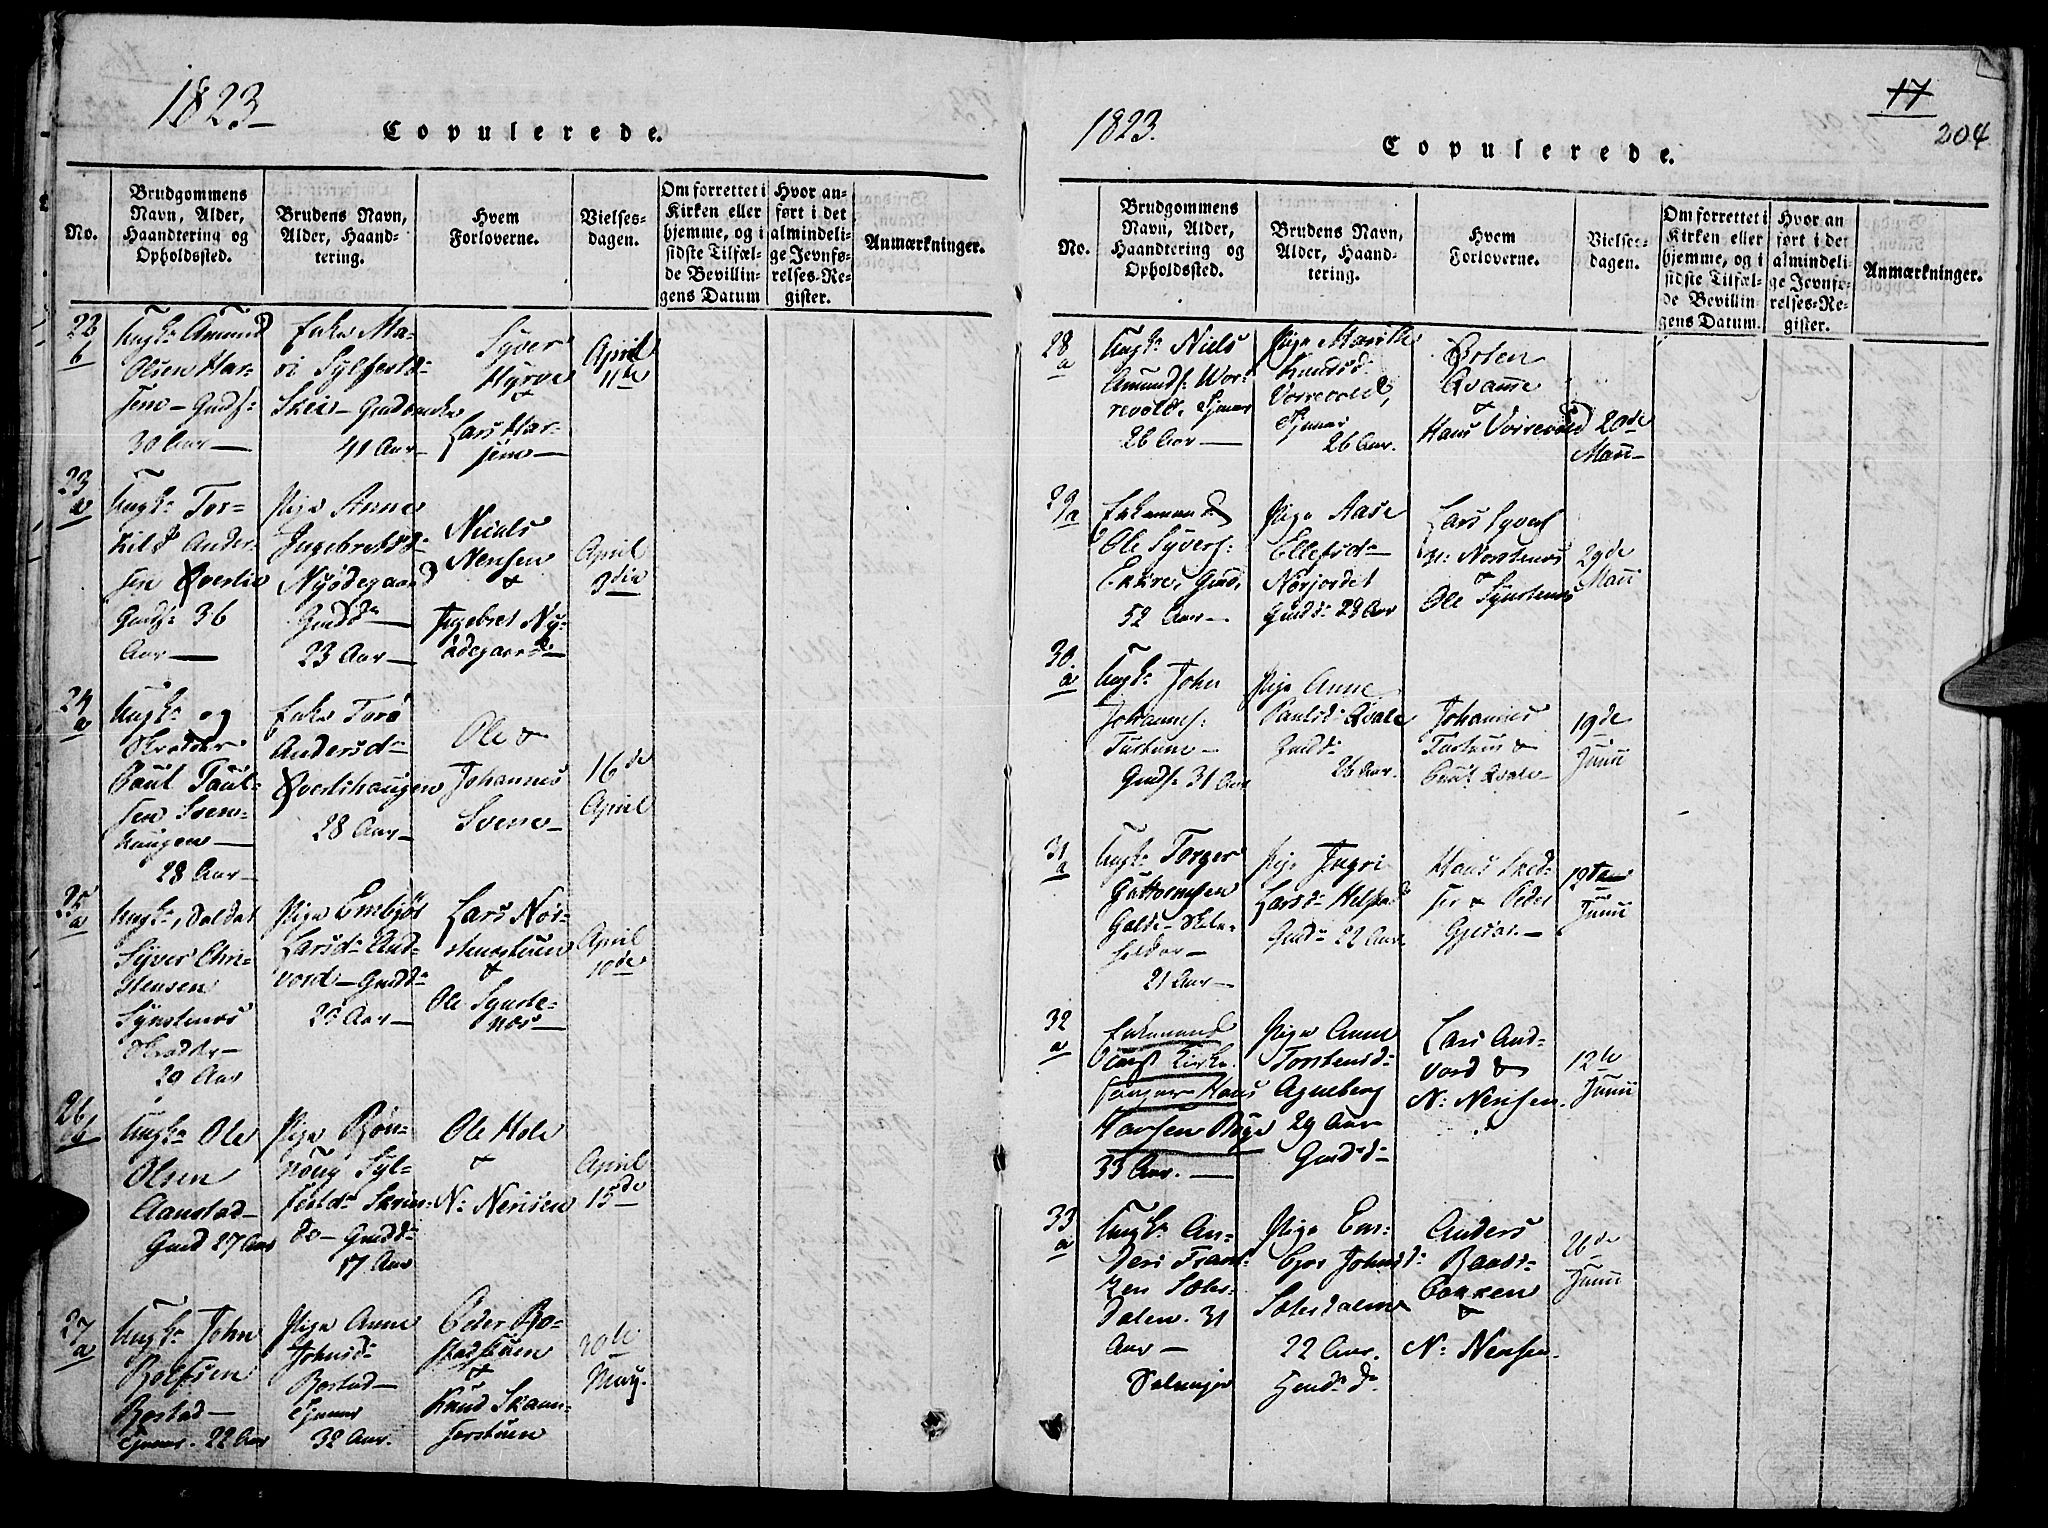 1823
Copulerede.
No.
Brudgommens Navn, Alder, Haandtering og Opholdssted.
Brudens Navn, Alder, Haandtering.
Hvem Forloverne.
Vielsesdagen.
Om forrettet i Kirken eller hjemme, og i sidste Tilfælde Bevillingens Datum
Hvor anført i det almindelige Jevnførelses-Register.
Anmærkninger.
22
b
Ungk: Amund
Olsen Har-
30 Aar
Enke Ma-
ri Sylfestd:
41 Aar
Syver
&
Lars Har-
April
11te
23
a
Ungk: Tor-
kild Ander-
sen Øverlie
Gmdf: 36
Aar
Pige Anne
Ingebretsd:
Nyødegaard
Gmdd:
23 Aar
Niels
Nensen
&
Ingebret Ny-
ødegaard
April
9die
24
a
Ungk: og
Skrædder
Poul Poul-
sen Svens-
haugen
28 Aar
Enke Torø
Andersd:
Øverlihaugen
28 Aar
Ole &
Johannes
Svene
16de
April
25
a
Ungk:, Soldat
Syver Chri-
stensen
Synstenes
Skrædder
29 Aar
Pige Embjør
Larsd: And-
vord Gmdd:
Aar
Lars Nor-
&
Ole Synste-
nes
April
10de
26
b
Ungk: Ole
Olsen
Aanstad
Gmd 27 Aar
Pige Røn-
nøug Syl-
festd:
Gmdd:
17 Aar
Ole Hole
&
N: Nensen
April
15de
27
a
Ungk: John
Rolfsen
Bostad
Tjener. 22 Aar
Pige Anne
Johnsd:
Bostad
Tjener
32 Aar.
Peder Bo-
&
Knud
30te
May.
1823.
17
204
Copulerede.
No.
Brudgommens Navn, Alder, Haandtering og Opholdssted.
Brudens Navn, Alder, Haandtering.
Hvem Forloverne.
Vielsesdagen.
Om forrettet i Kirken eller hjemme, og i sidste Tilfælde Bevillingens Datum.
Hvor anført i det almindelige Jevnførelses-Register.
Anmærkninger.
28
a
Ungk: Niels
Amundf: Vor-
revold, Tjener
26 Aar
Pige Marithe
Knudsd:
Vorrevold,
Tjener
26 Aar.
Østen
Qvamme
&
Hans Vorrevold
20de
Maii
29
a
Enkemand
Ole Syverf:
Ekkre, Gmd,
52 Aar
Pige Aase
Ellefsd:
Norjordet
Gmdd: 23 Aar
Lars Syverf
Norstenes
&
Ole Synstenes
29de
Maii
30
a
Ungk: John
Johannef:
Gmdf 31 Aar
Pige Anne
Paulsd: Qvale
Gmdd:
26 Aar.
Johannes
&
Poul Qvale
19de
Junii
31
a
Ungk: Torger
Guttormsen
Galde
21 Aar
Pige Ingri
Larsd:
Gmd: 22 Aar.
Hans
& Peder
19de
Junii
32
a
Enkemand
Kirke-
sanger Hans
Hansen Bøge
33 Aar.
Pige Anne
Torstensd:
29 Aar
Gmdd:
Lars And-
vord &
N: Nensen.
12te
Junii
33
a
Ungk: An-
ders Frant-
zen Søles-
dalen. 31
Aar
Pige Em-
bjør Johnsd:
Sølesdalen
22 Aar.
Anders
Baads-
bakken
&
N: Nensen.
26de
Junii